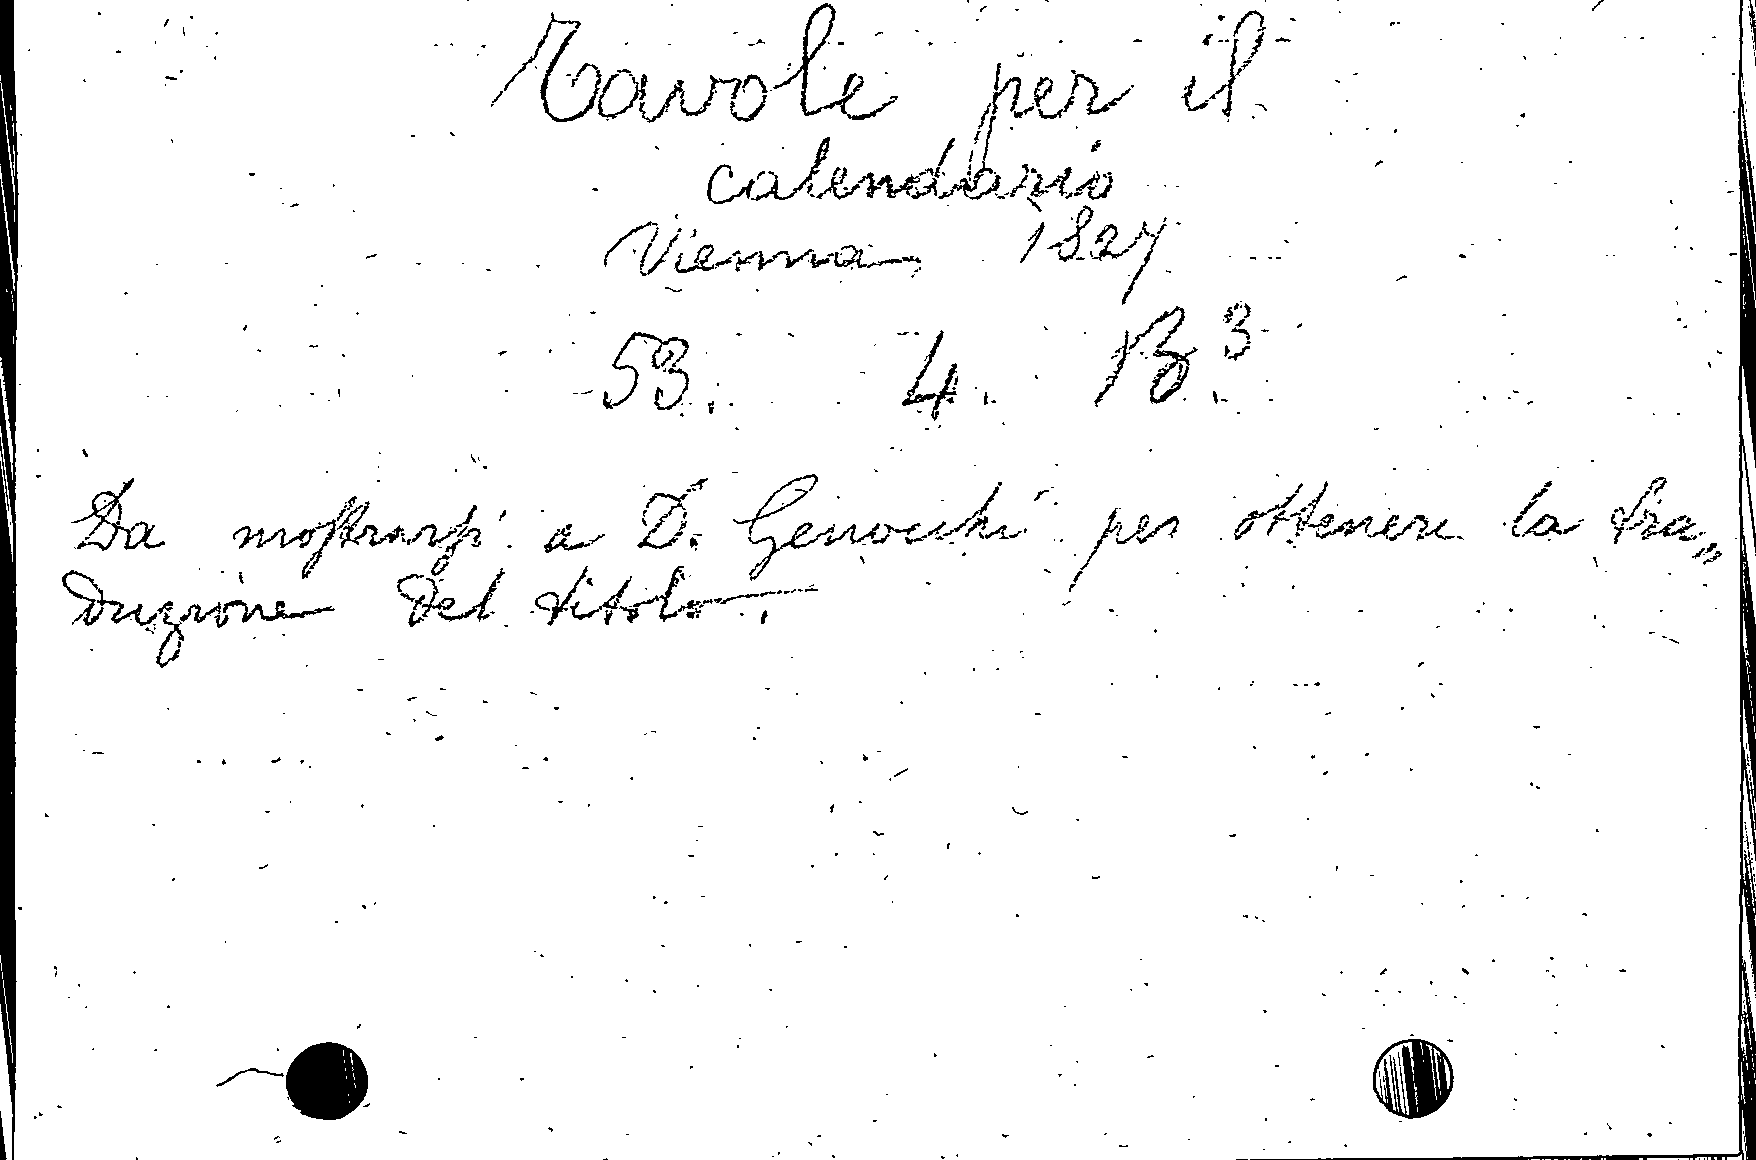 Tavole per il
calendario
Vienna 1827
53. 4. B.3
Da mostrarsi a D. Genocchi per ottenere la tra„
duzione del titolo.